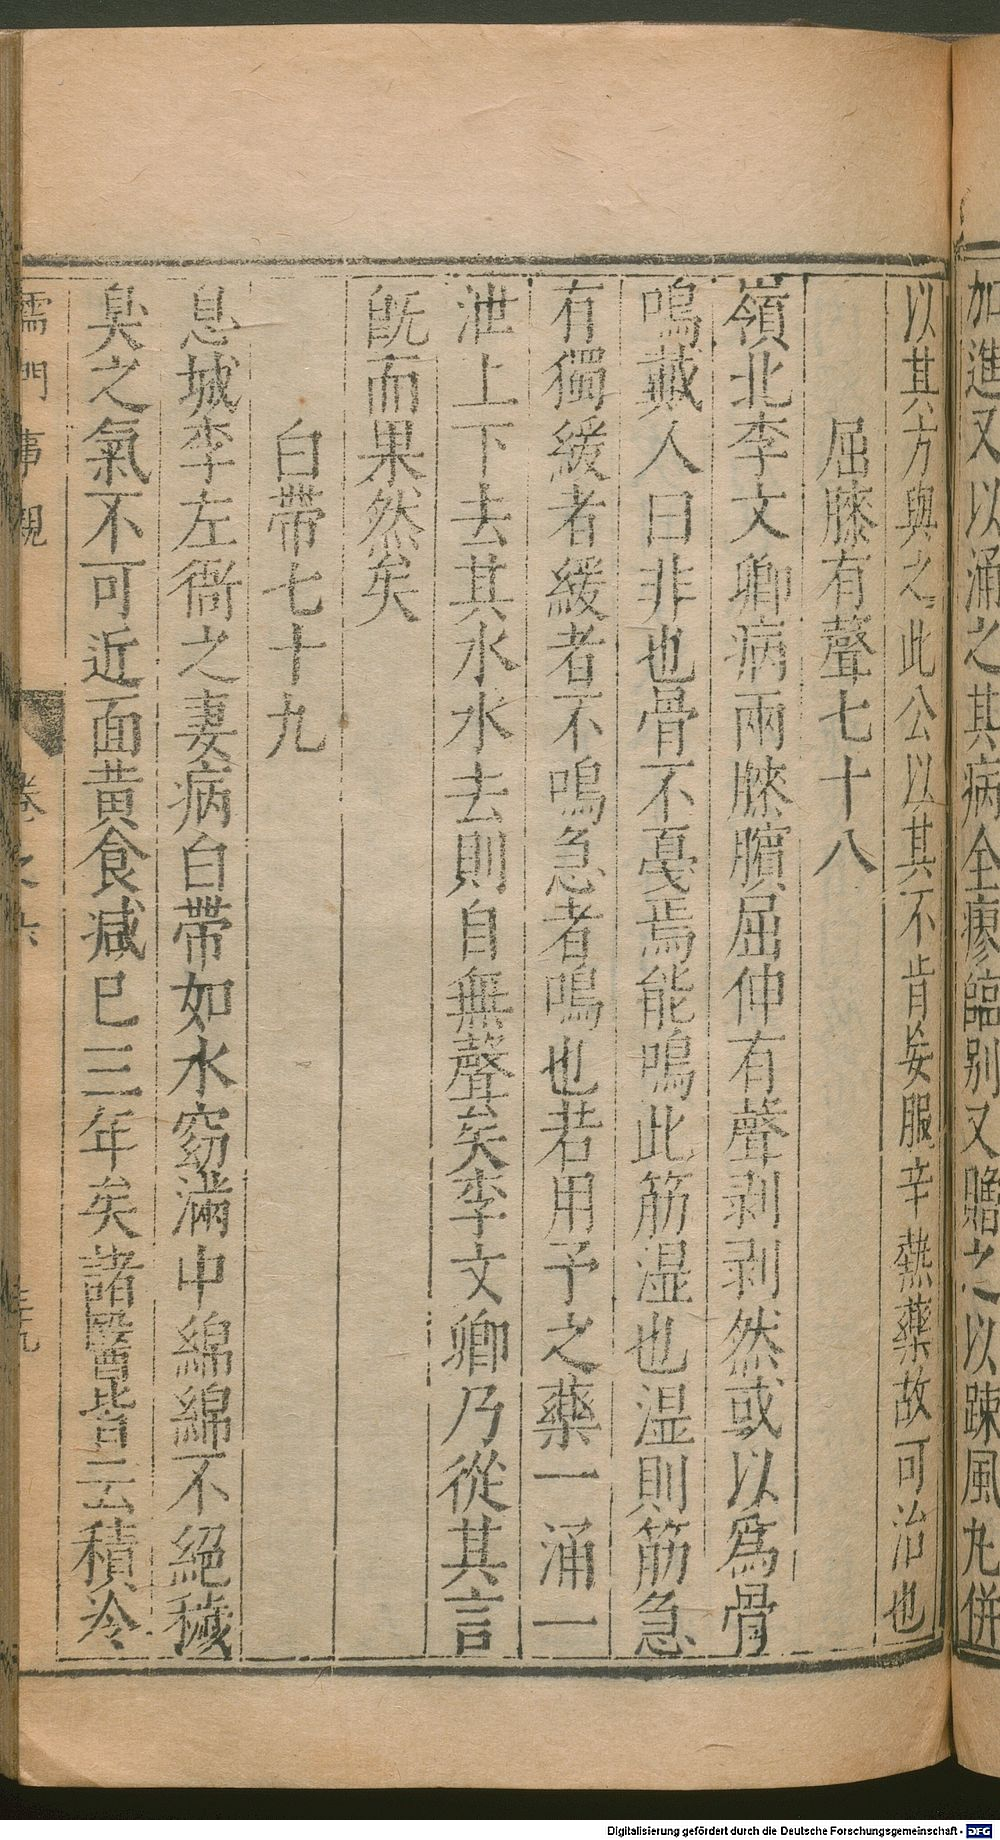 加進又以涌之其病全瘳臨别又贈之以踈風丸併
以其方與之此公以其不肯妄服辛熱藥故可治也
屈膝有聲七十八
嶺北李文卿病兩膝臏屈伸有聲剥剥然或以爲骨
鳴戴人曰非也骨不戞焉能鳴此筋湿也湿則筋急
有獨緩者緩者不鳴急者鳴也若用予之藥一涌一
泄上下去其水水去則自無聲矣李文卿乃從其言
既而果然矣
白帶七十九
息城李左衙之妻病白帶如水窈滿中綿綿不絕穢
臭之氣不可近面黃食减已三年矣諸醫皆云積冷
儒門事親 卷之六 三十九
Digitalisierung gefördert durch die Deutsche Forschungsgemeinschaft - DFG